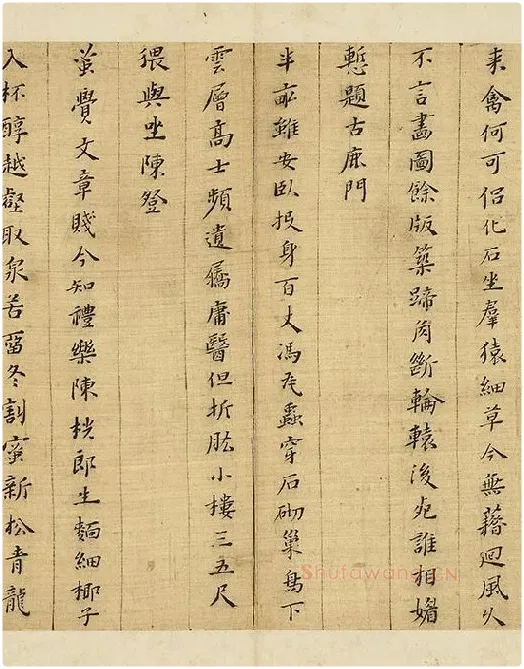 來禽何可侣化石坐羣猿細草今無藉迴風久
不言畫圖餘版築蹄肉斷輪轅後誰相媚
慙題古鹿門
半畝雖安臥投身百丈馮蟲穿石砌巢鳥下
雲層高士頻遺屩庸醫但折肱小樓三五尺
猥與坐陳登
蚤覺文章賤今知禮樂陳桄郎生麵細椰子
入杯醇越壑取泉苦畱冬割蜜新松青龍
Shufawang.CN